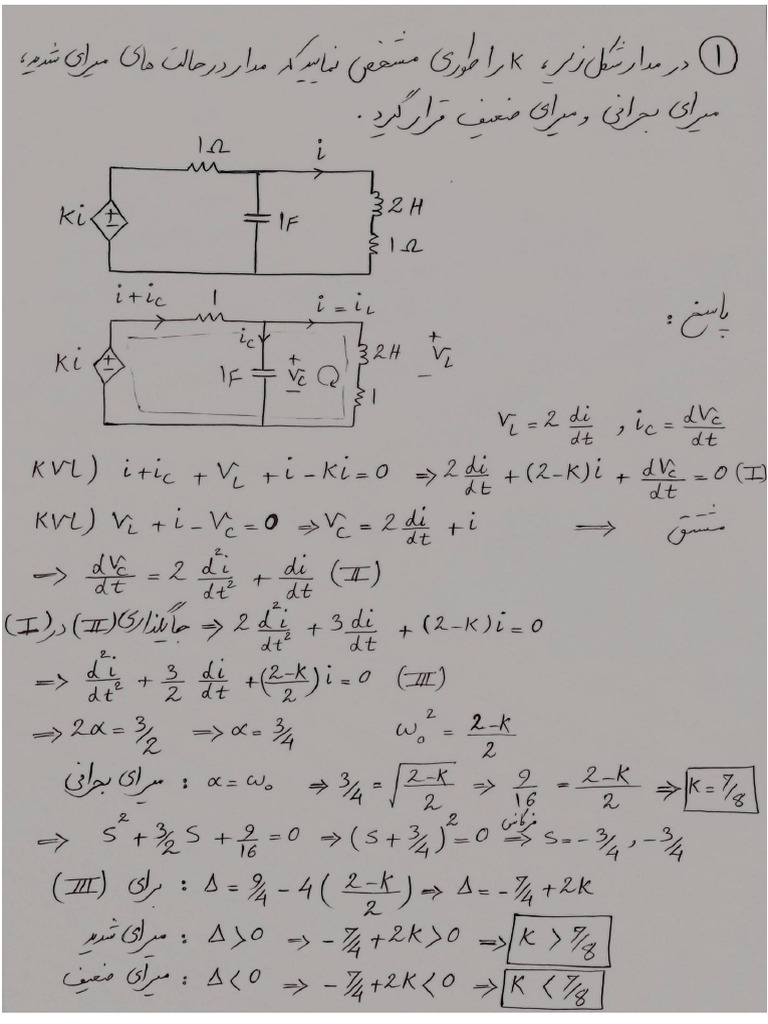 ① در مدار شکل زیر، K را طوری مشخص نمایید که مدار در حالت های میرای شدید،
میرای بحرانی و میرای ضعیف قرار گیرد.
1Ω i
Ki + − 1F 2H
1Ω
پاسخ:
i+ic 1 i = iL
Ki + − ic 1F + Vc − 2H 1 + VL −
VL = 2 di/dt , ic = dVc/dt
KVL) i+ic + VL + i - Ki = 0 ⇒ 2 di/dt + (2-K)i + dVc/dt = 0 (I)
KVL) VL + i - Vc = 0 ⇒ Vc = 2 di/dt + i ⟹ مشتق
⇒ dVc/dt = 2 d²i/dt² + di/dt (II)
جایگذاری (II) در (I) ⇒ 2 d²i/dt² + 3 di/dt + (2-K)i = 0
⇒ d²i/dt² + 3/2 di/dt + (2-K/2)i = 0 (III)
⇒ 2α = 3/2 ⇒ α = 3/4 ω₀² = 2-K/2
میرای بحرانی : α = ω₀ ⇒ 3/4 = √2-K/2 ⇒ 9/16 = 2-K/2 ⇒ K = 7/8
⇒ S² + 3/2 S + 9/16 = 0 ⇒ (S + 3/4)² = 0 ⇒ S = -3/4 , -3/4
برای (III) : Δ = 9/4 - 4(2-K/2) ⇒ Δ = -7/4 + 2K
میرای شدید : Δ > 0 ⇒ -7/4 + 2K > 0 ⇒ K > 7/8
میرای ضعیف : Δ < 0 ⇒ -7/4 + 2K < 0 ⇒ K < 7/8